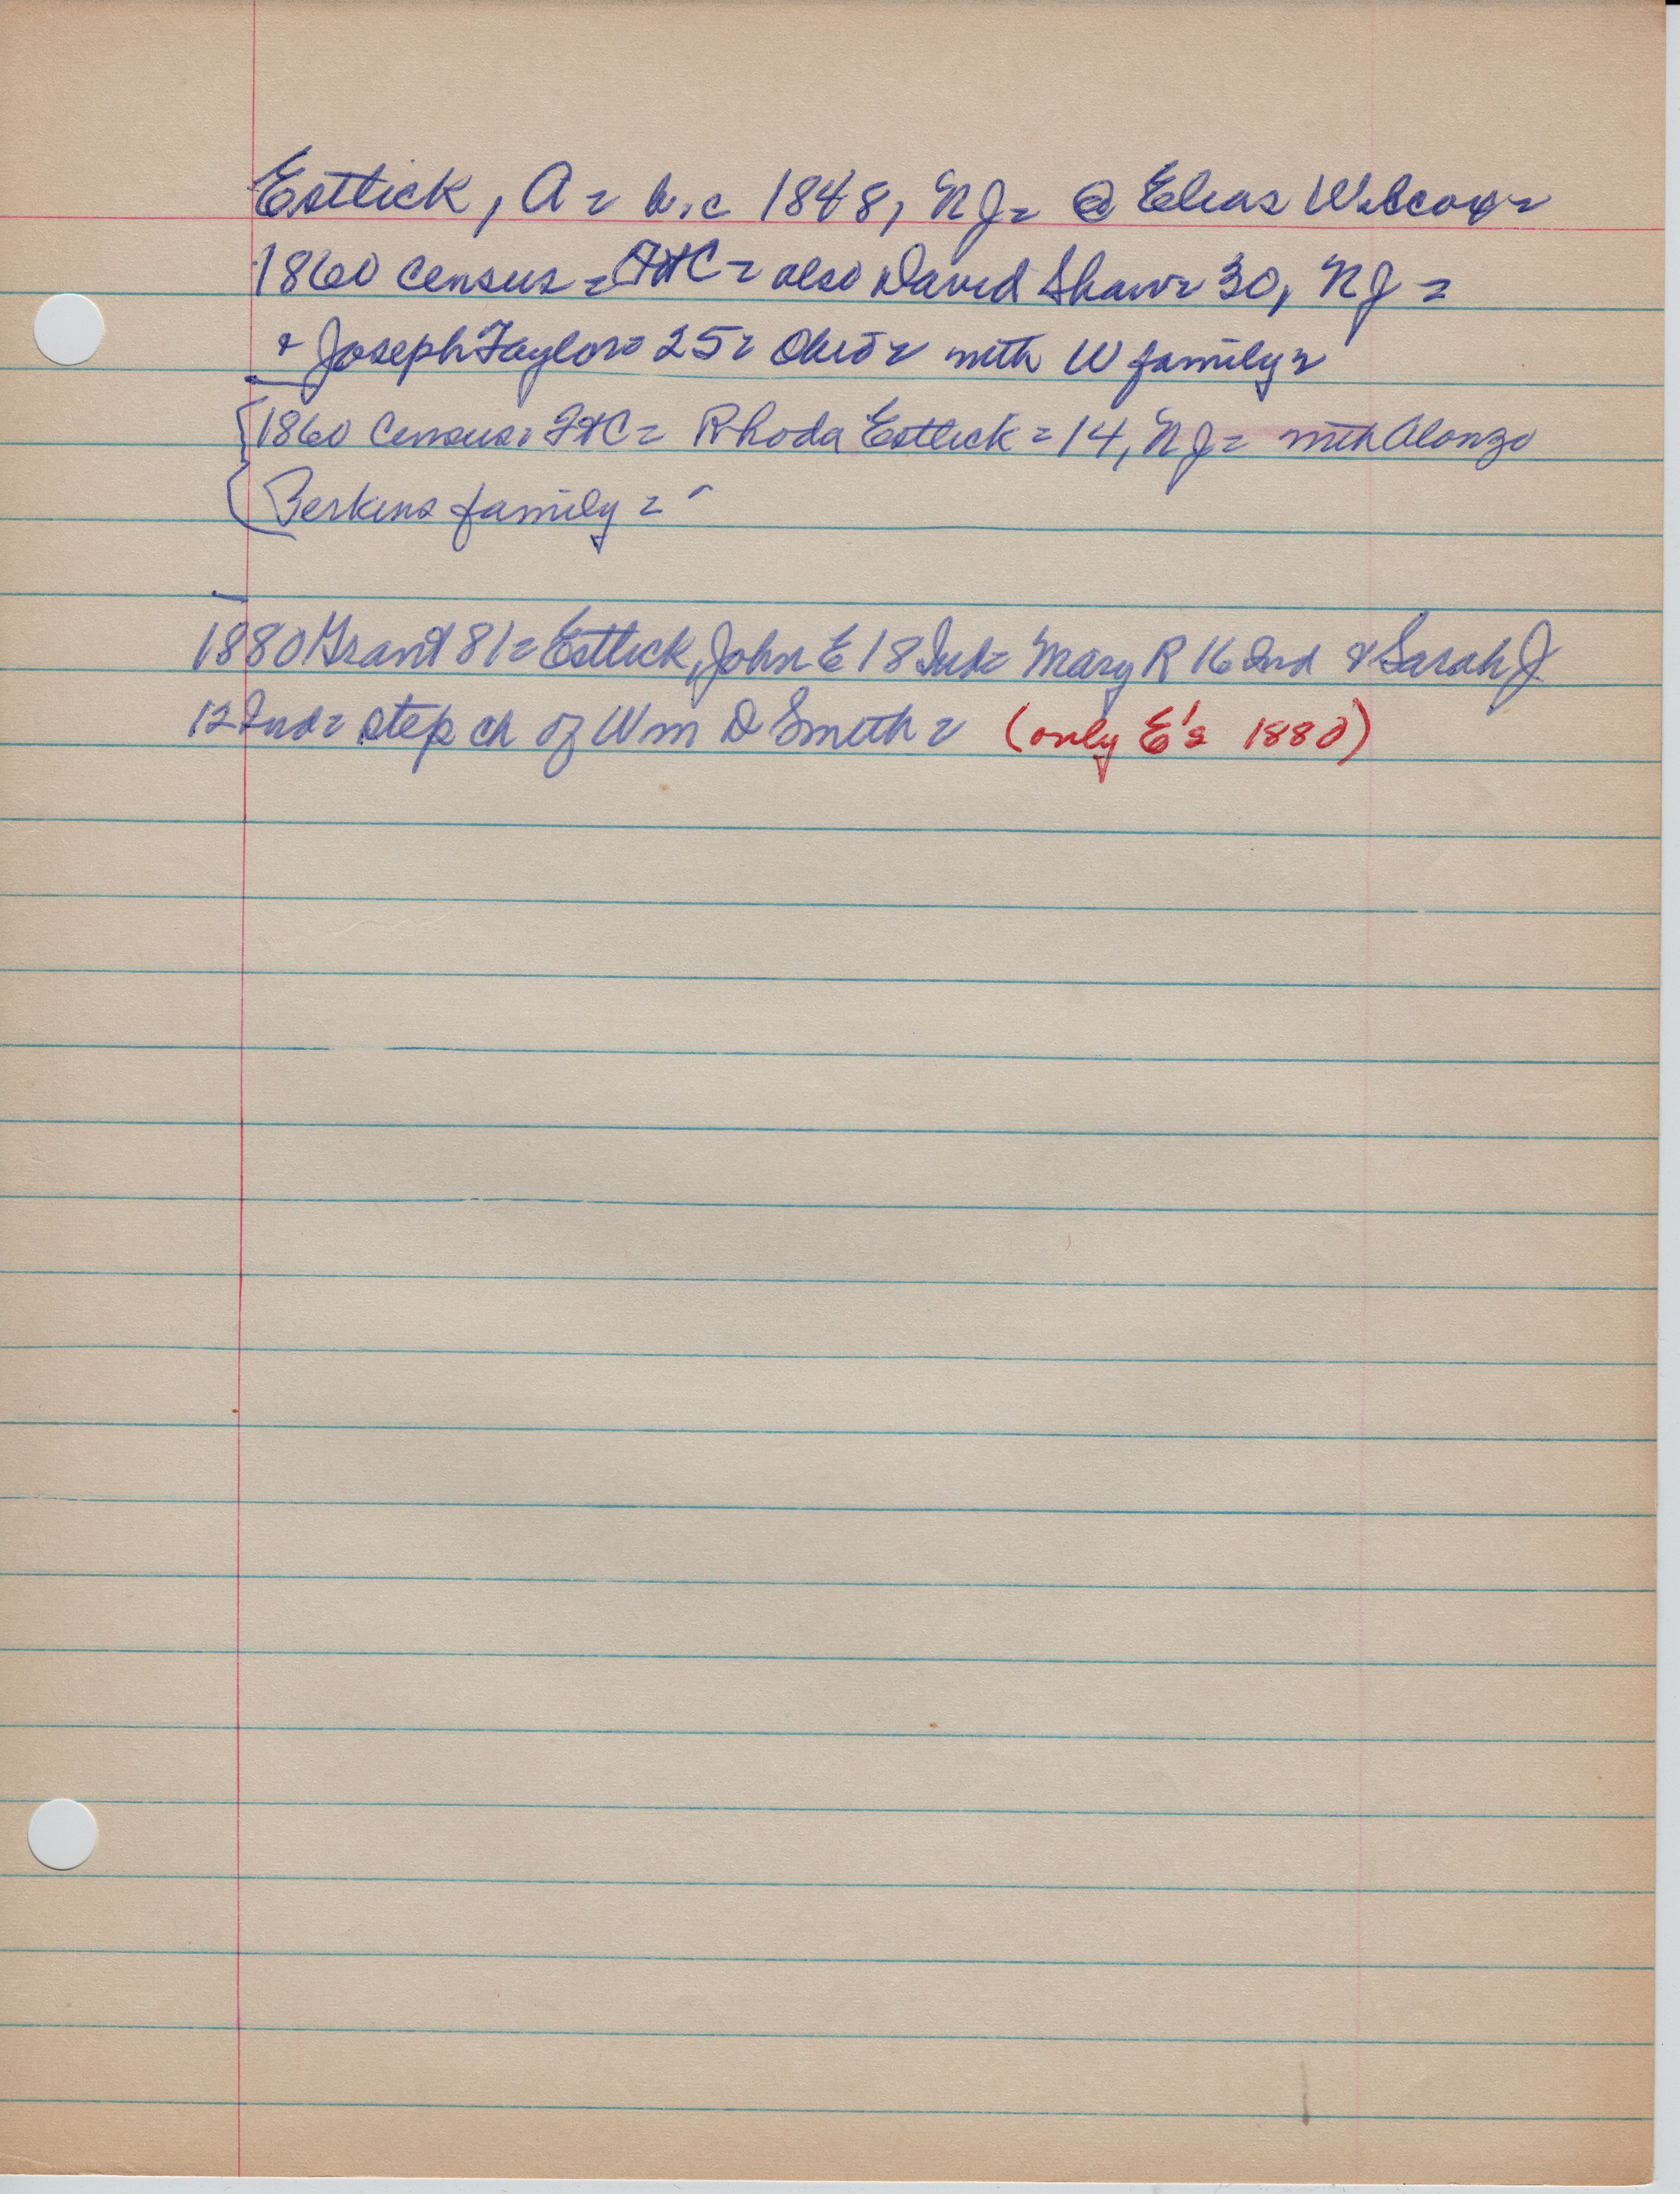 Estlick, A = b. c 1848, NJ = @ Elias Wilcox =
1860 census = FtC = also David Shaw = 30, NJ =
& Joseph Taylor = 25 = Ohio = with W family =
1860 Census = FtC = Rhoda Estlick = 14, NJ = with Alonzo
Perkins family =
1880 Grant 81 = Estlick, John E 18 Ind = Mary R 16 Ind & Sarah J
12 Ind = step ch of Wm D Smith = (only E's 1880)